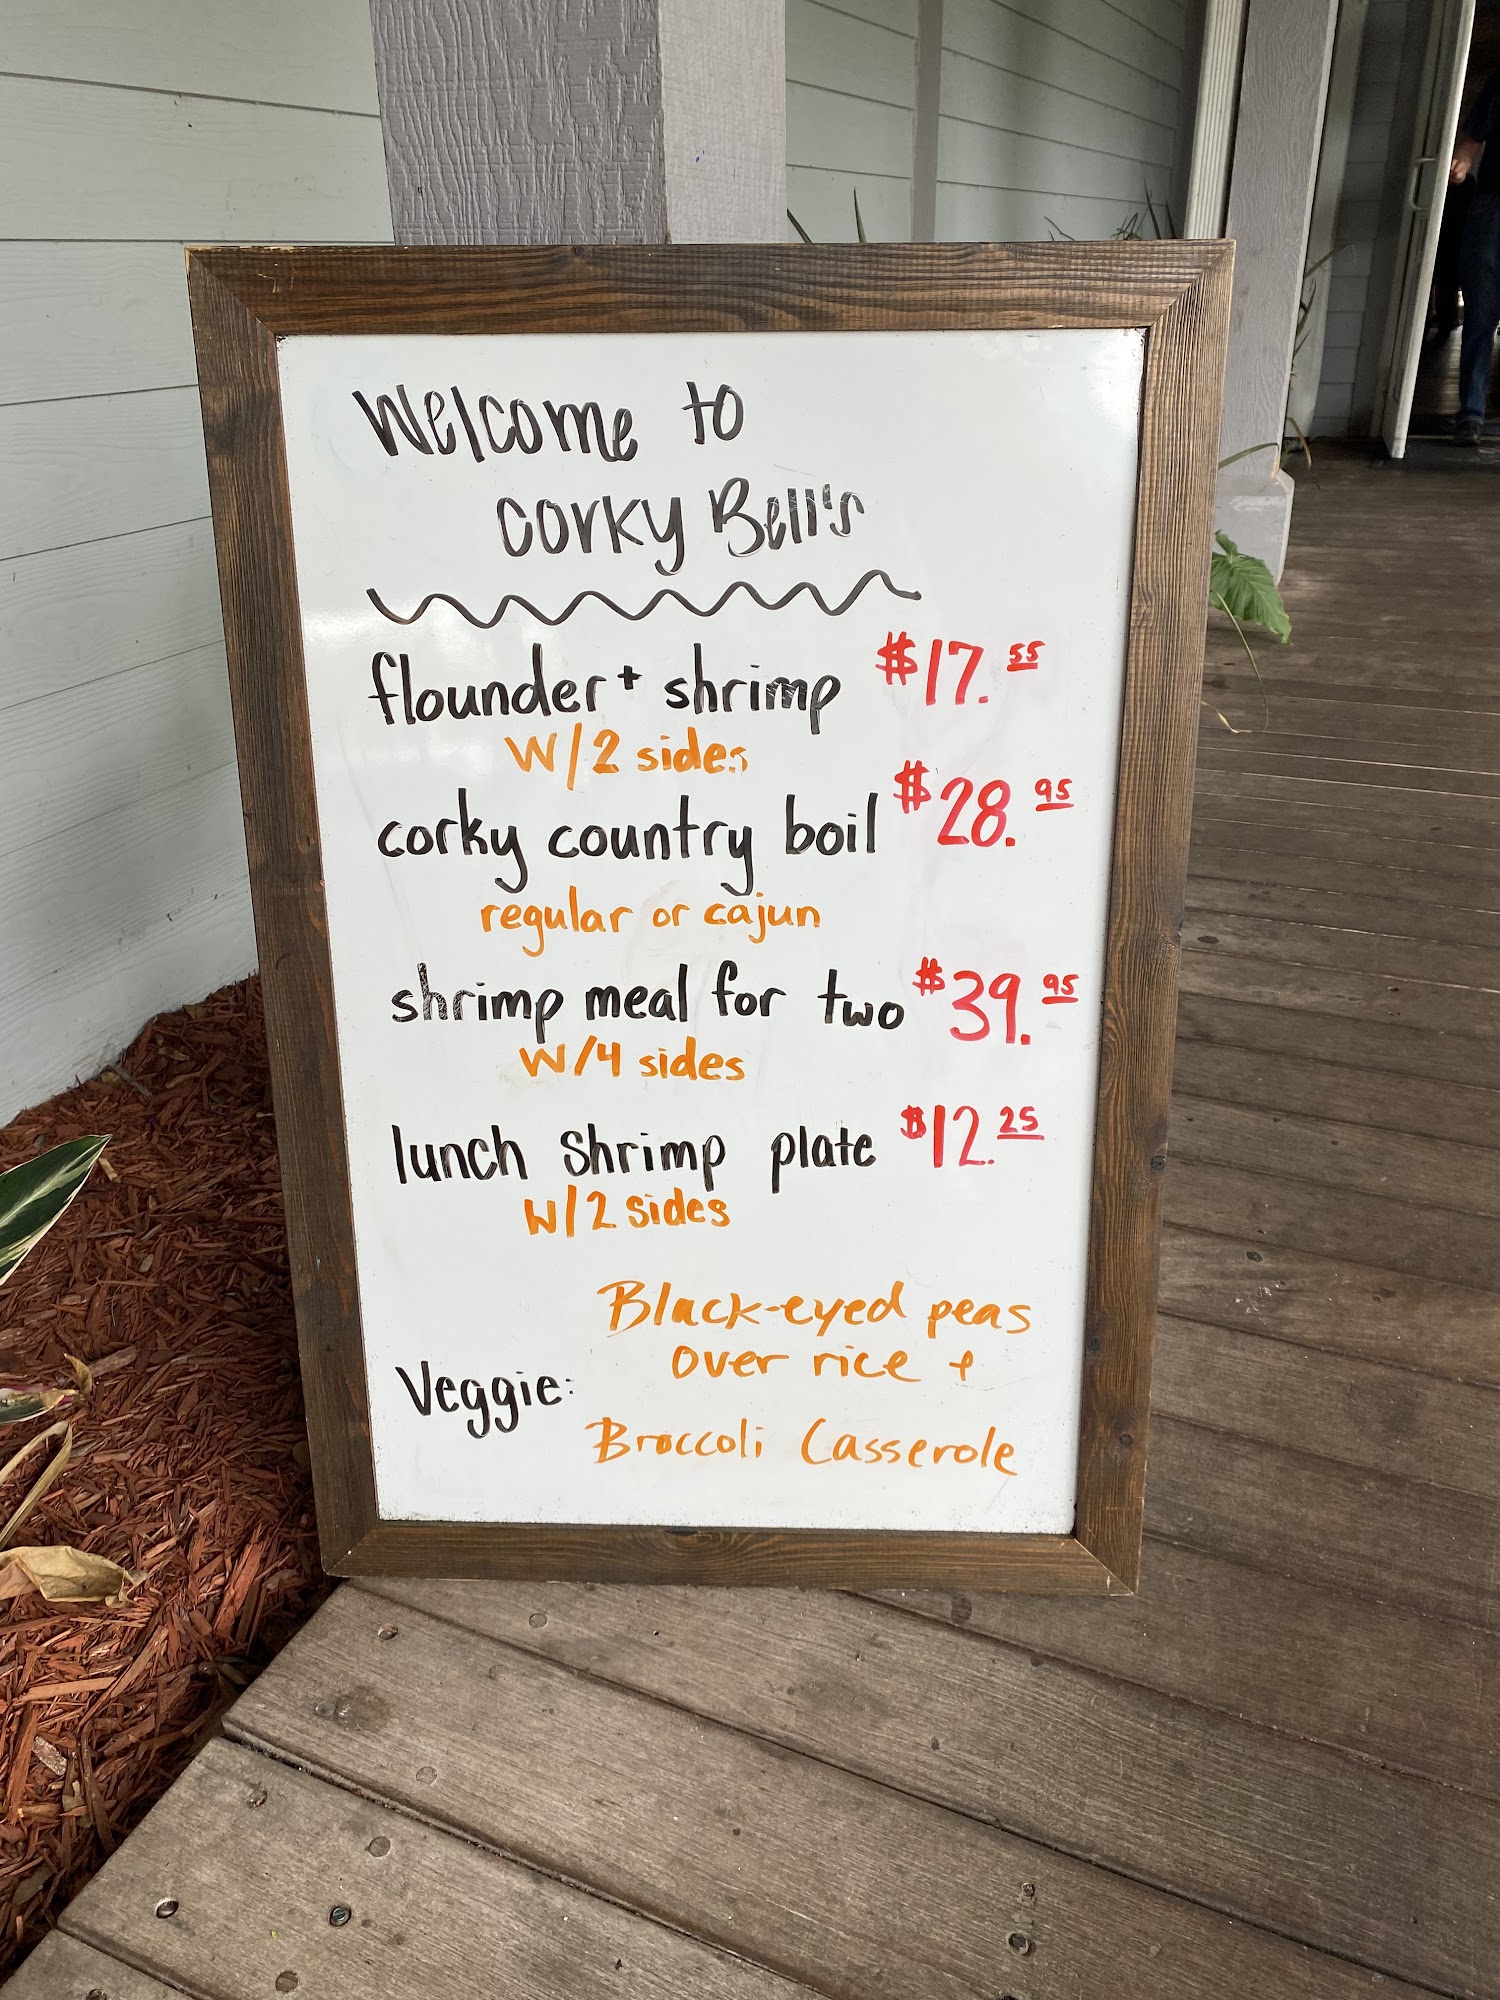 Welcome to
Corky Bell's
flounder + shrimp $17.55
w/2 sides
corky country boil $28.95
regular or cajun
shrimp meal for two $39.95
w/4 sides
lunch shrimp plate $12.25
w/2 sides
Black-eyed peas
over rice +
Veggie:
Broccoli Casserole